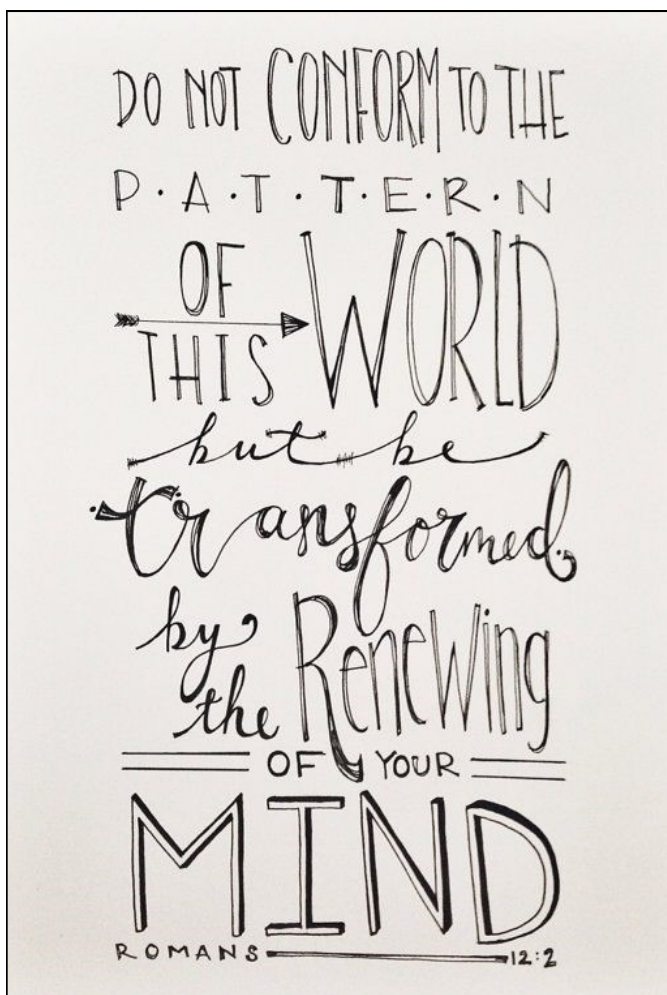 DO NOT CONFORM TO THE
P·A·T·T·E·R·N
OF
THIS WORLD
but be
transformed
by
the Renewing
OF YOUR
MIND
ROMANS 12:2